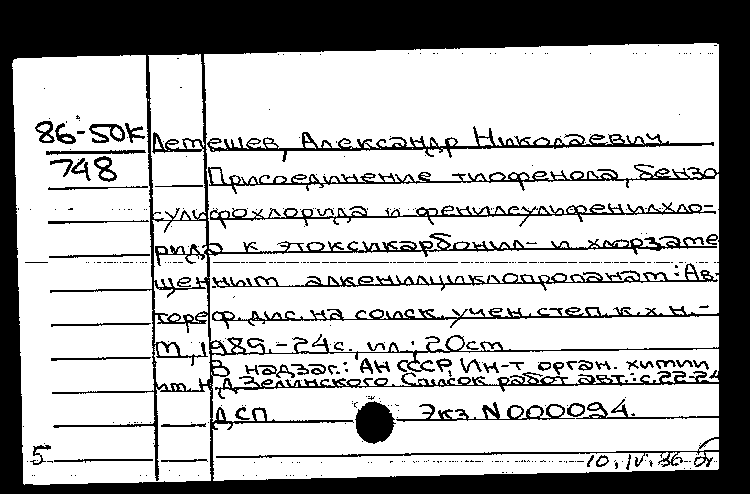 86-50К
748
Летешев, Александр Николаевич.
Присоединение тиофенола, бензо
сульфохлорида и фенилсульфенилхло-
рида к этоксикарбонил- и хлорзаме
щенным алкенилциклопропанам: Ав-
тореф. дис. на соиск. учен. степ. к. х. н. -
М, 1985. - 24 с., ил; 20 см
В надзаг.: АН СССР, Ин-т орган. химии
им. Н.Д. Зелинского. Список работ авт.: с. 22-24
ДСП. Экз. N 000094.
5
10.IV.86